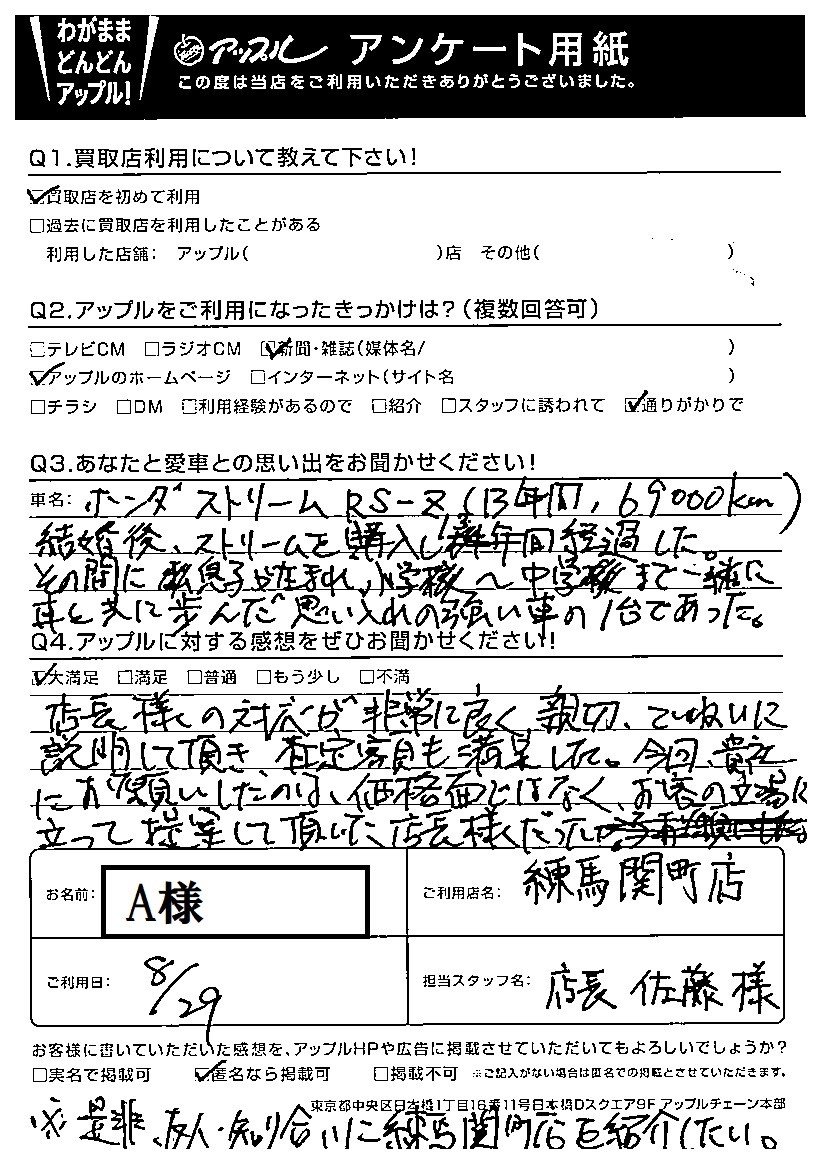 わがまま
どんどん
アップル!
アップル アンケート用紙
この度は当店をご利用いただきありがとうございました。
Q1.買取店利用について教えて下さい!
☑買取店を初めて利用
□過去に買取店を利用したことがある
利用した店舗: アップル( )店 その他( )
Q2.アップルをご利用になったきっかけは?(複数回答可)
□テレビCM □ラジオCM ☑新聞・雑誌(媒体名/ )
☑アップルのホームページ □インターネット(サイト名 )
□チラシ □DM □利用経験があるので □紹介 □スタッフに誘われて ☑通りがかりで
Q3.あなたと愛車との思い出をお聞かせください!
車名: ホンダ ストリーム RS-Z (13年間, 69000km)
結婚後、ストリームを購入し 年間経過した。
その間に 息子が生まれ、小学校〜中学校まで一緒に
車と共に歩んだ思い入れの強い車の1台であった。
Q4.アップルに対する感想をぜひお聞かせください!
☑大満足 □満足 □普通 □もう少し □不満
店長様の対応が非常に良く、親切、ていねいに
説明して頂き 査定額も満足した。今回、貴社
にお願いしたのは、価格面ではなく、お客の立場に
立って提案して頂いた店長様だった。
お名前: A様
ご利用店名: 練馬関町店
ご利用日: 8/29
担当スタッフ名: 店長 佐藤様
お客様に書いていただいた感想を、アップルHPや広告に掲載させていただいてもよろしいでしょうか?
□実名で掲載可 ☑匿名なら掲載可 □掲載不可 ※ご記入がない場合は匿名での掲載とさせていただきます。
東京都中央区日本橋1丁目16番11号日本橋Dスクエア9F アップルチェーン本部
※是非、友人・知り合いに練馬関町店を紹介したい。